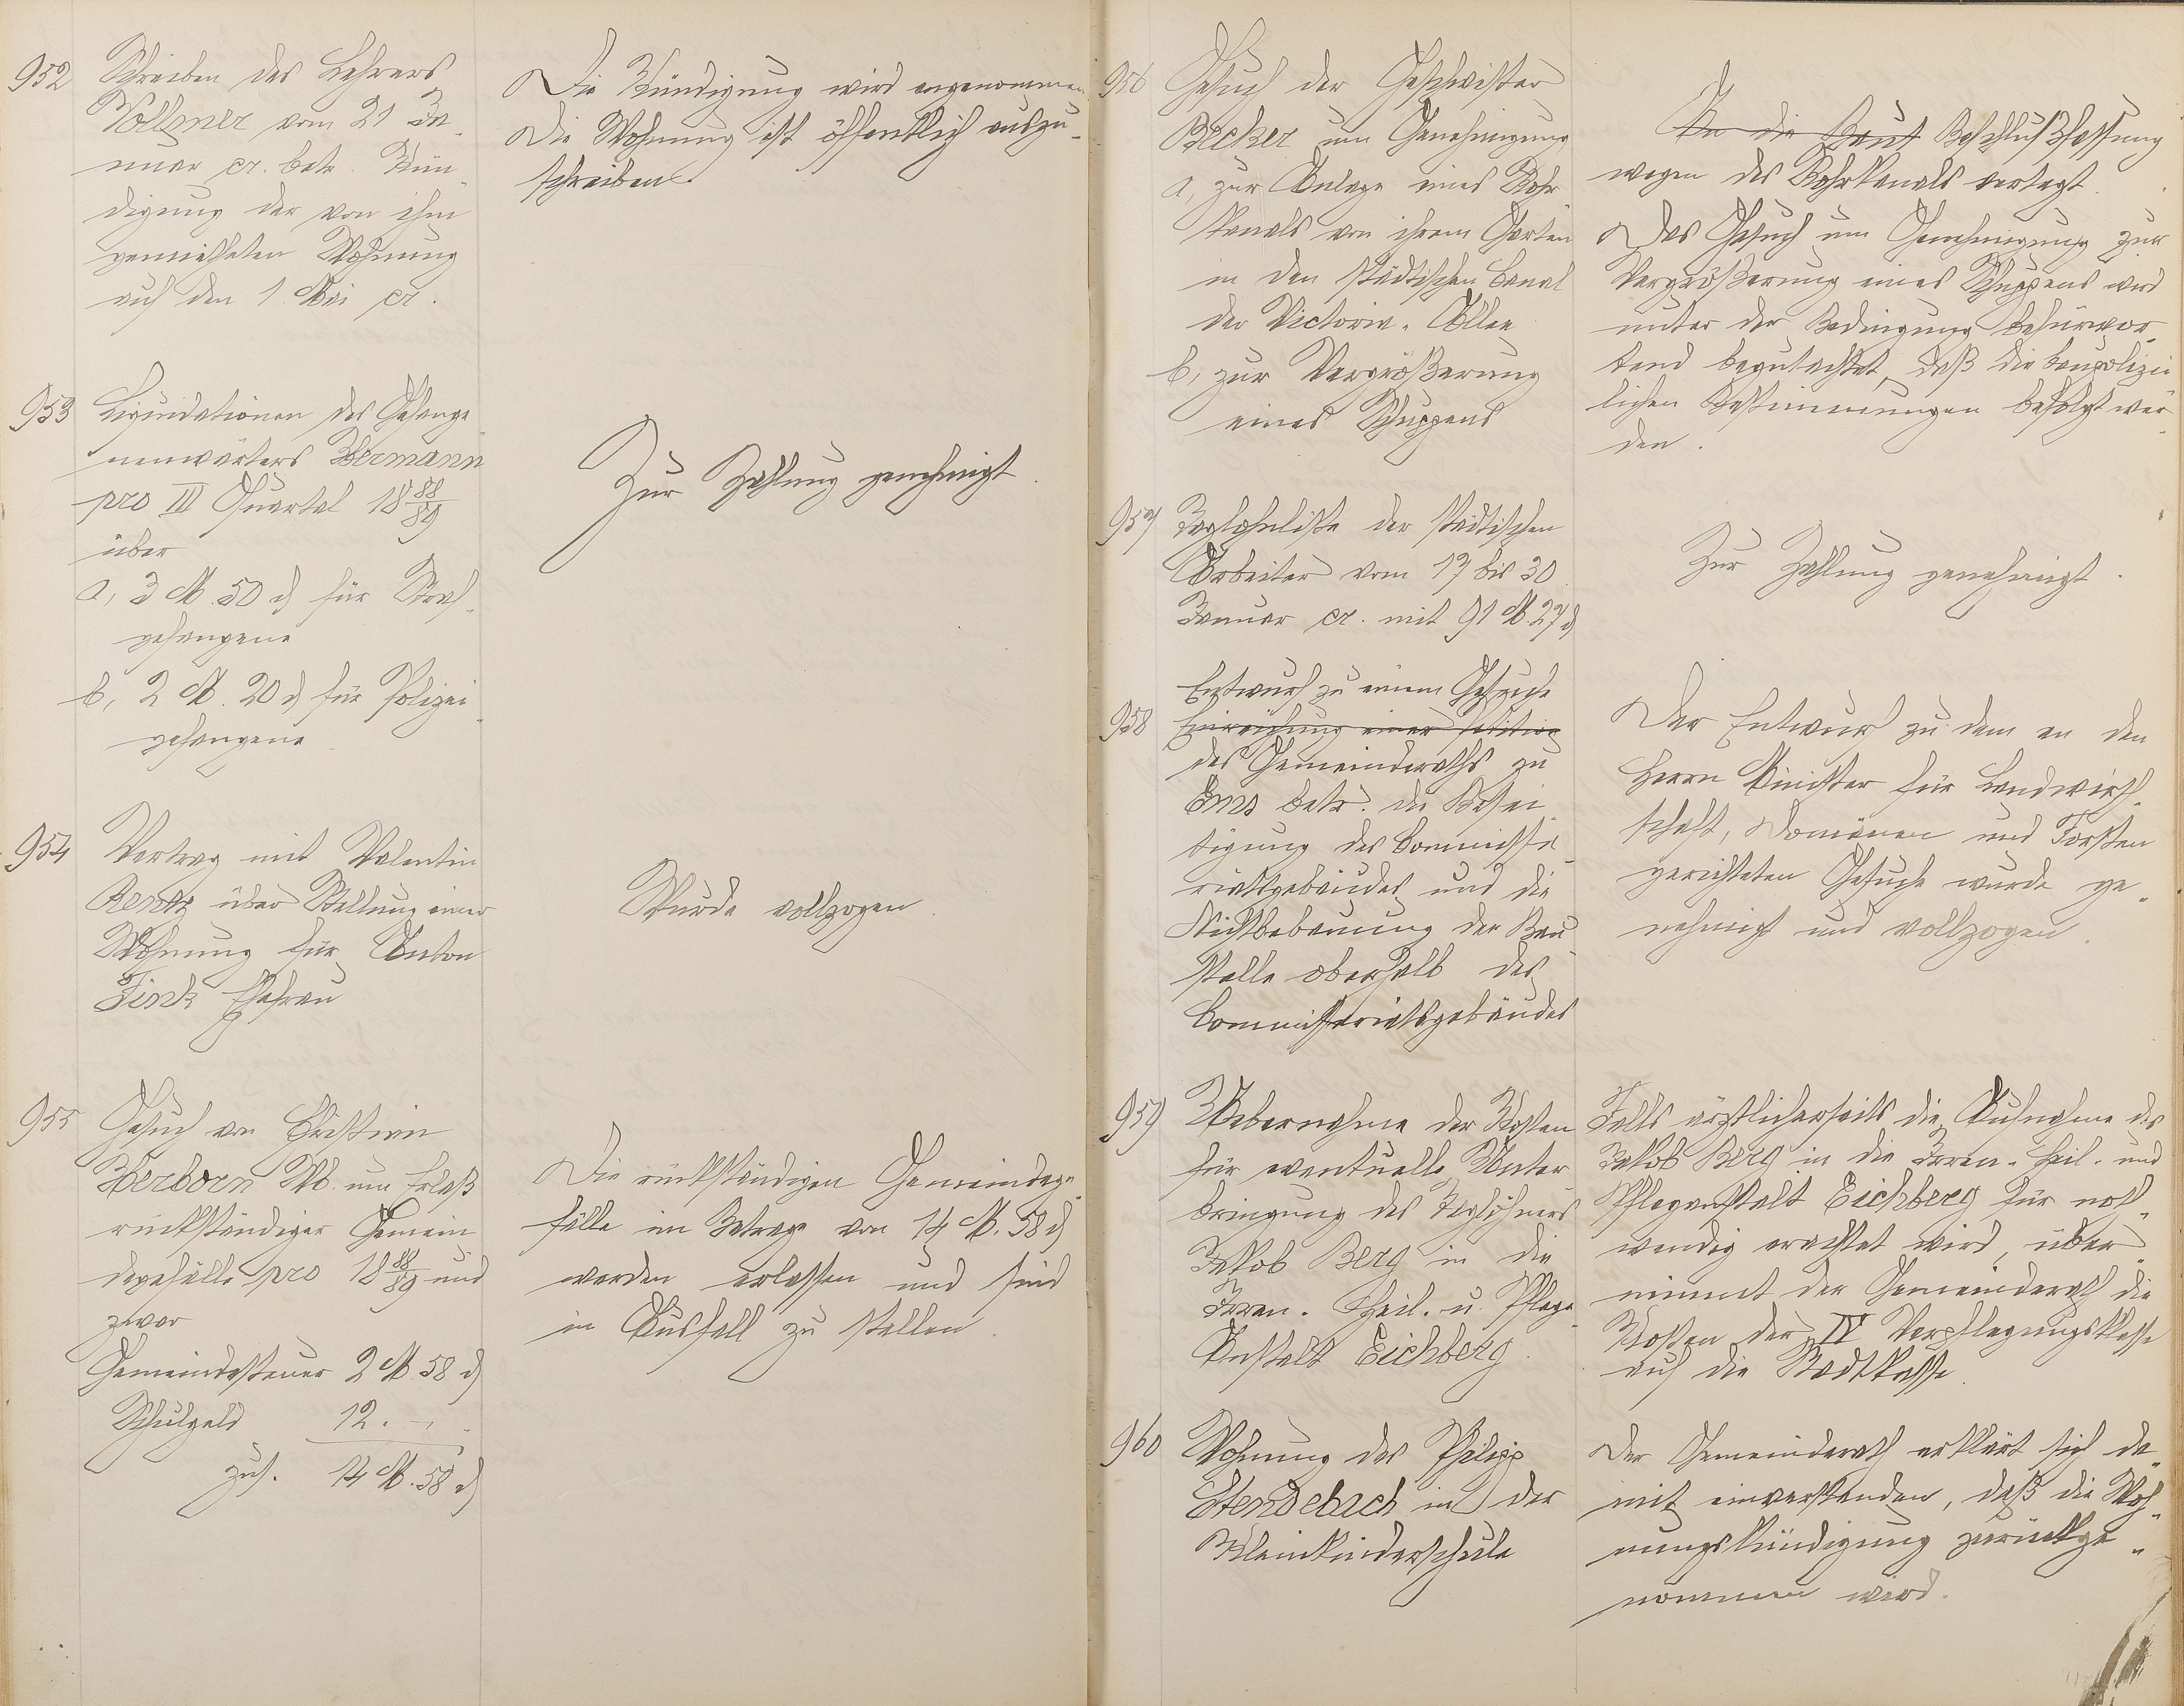 952 Schreiben des Lehrers
Vollmer vom 21 Ja-
nuar cr. betr. Kün-
digung der von ihm
gemietheten Wohnung
auf den 1. Mai cr.
Die Kündigung wird angenommen
Die Wohnung ist öffentlich auszu-
schreiben.
953 Liquidationen des Gefange
nenwärters Hermann
pro III Quartal 18 88/89
über
a, 3 M. 50 d für Straf-
gefangene
b, 2 M. 20 d für Polizei-
gefangene
Zur Zahlung genehmigt.
954 Vertrag mit Valentin
Rentz über Stellung einer
Wohnung für Anton
Fink Ehefrau
Wurde vollzogen.
955 Gesuch von Christian
Herborn Wb. um Erlaß
rückständiger Gemein
degefälle pro 18 88/89 und
zwar
Gemeindesteuer 2 M 58 d
Schulgeld 12. –
zus. 14 M. 58 d
Die rückständigen Gemeindege-
fälle im Betrage von 14 M. 58 d
werden erlassen und sind
in Ausfall zu stellen.
956 Gesuch der Geschwister
Becker um Genehmigung
a, zur Anlage eines Rohr
kanals von ihrem Garten
in den städtischen Canal
der Victoria-Allee
b, zur Vergrößerung
eines Schuppens
An die Beschlußfassung
wegen des Rohrkanals vertagt.
Das Gesuch um Genehmigung zur
Vergrößerung eines Schuppens wird
unter der Bedingung befürwor-
tend begutachtet, daß die baupolizei
lichen Bestimmungen befolgt wer-
den.
957 Taglohnliste der städtischen
Arbeiter vom 17 bis 30
Januar cr. mit 91 M. 27 d
Zur Zahlung genehmigt.
Entwurf zu einem Gesuche
958 Einreichung einer Petition
des Gemeinderaths zu
Ems betr. die Besei-
tigung des Commissa-
riatsgebäudes und die
Nichtbebauung der Bau-
stelle oberhalb des
Commissariatsgebäudes
Der Entwurf zu dem an den
Herrn Minister für Landwirth-
schaft, Domänen und Forsten
gerichteten Gesuche wurde ge-
nehmigt und vollzogen.
959 Uebernahme der Kosten
für eventuelle Unter
bringung des Taglöhners
Jakob Berg in die
Irren-Heil- u. Pflege-
Anstalt Eichberg.
Falls ärztlicherseits die Aufnahme des
Jakob Berg in die Irren-Heil- und
Pfleganstalt Eichberg für noth-
wendig erachtet wird, über-
nimmt der Gemeinderath die
Kosten der IV Verpflegungsklasse
auf die Stadtkasse.
960 Wohnung des Philipp
Stendebach in der
Kleinkinderschule
Der Gemeinderath erklärt sich da-
mit einverstanden, daß die Woh-
nungskündigung zurückge-
nommen wird.